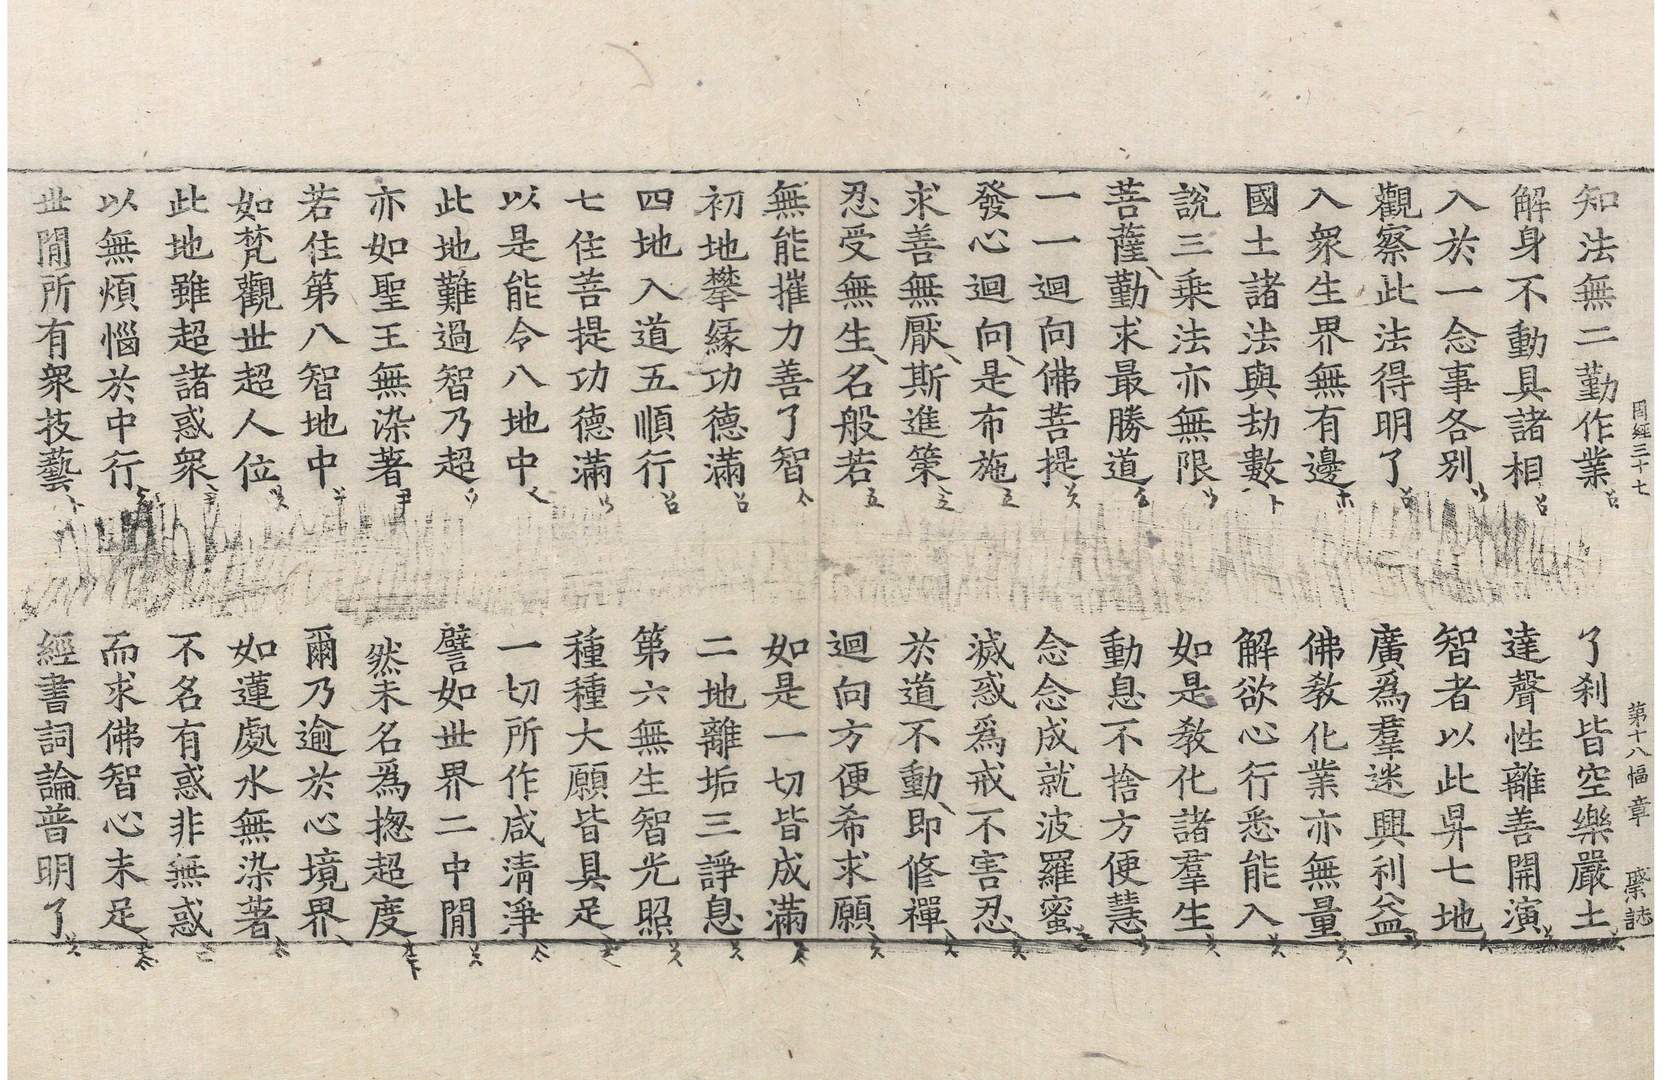 周經三十七 第十八幅章
知法無二勤作業 了刹皆空樂嚴土
解身不動具諸相 達聲性離善開演
入於一念事各別 智者以此昇七地
觀察此法得明了 廣爲羣迷興利益
入衆生界無有邊 佛教化業亦無量
國土諸法與劫數 解欲心行悉能入
說三乘法亦無限 如是教化諸羣生
菩薩勤求最勝道 動息不捨方便慧
一一迴向佛菩提 念念成就波羅蜜
發心迴向是布施 滅惑爲戒不害忍
求善無厭斯進策 於道不動即修禪
忍受無生名般若 迴向方便希求願
無能摧力善了智 如是一切皆成滿
初地攀緣功德滿 二地離垢三諍息
四地入道五順行 第六無生智光照
七住菩提功德滿 種種大願皆具足
以是能令八地中 一切所作咸清淨
此地難過智乃超 譬如世界二中間
亦如聖王無染著 然未名爲揔超度
若住第八智地中 爾乃逾於心境界
如梵觀世超人位 如蓮處水無染著
此地雖超諸惑衆 不名有惑非無惑
以無煩惱於中行 而求佛智心未足
世間所有衆技藝 經書詞論普明了